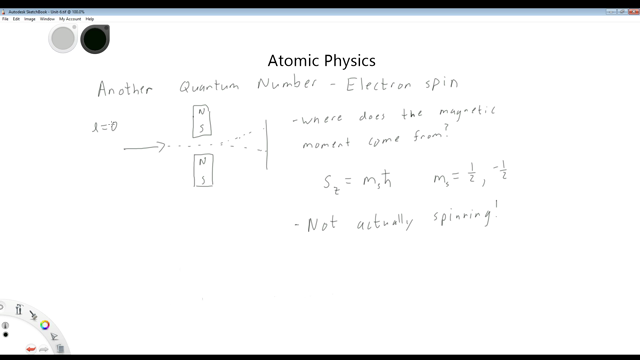 Autodesk SketchBook - Unit 6.tif @ 100.0%
File Edit Image Window My Account Help
Atomic Physics
Another Quantum Number - Electron spin
- Where does the magnetic
moment come from?
l=0
N
S
N
S
S_z = m_s ħ m_s = 1/2, -1/2
- Not actually spinning!